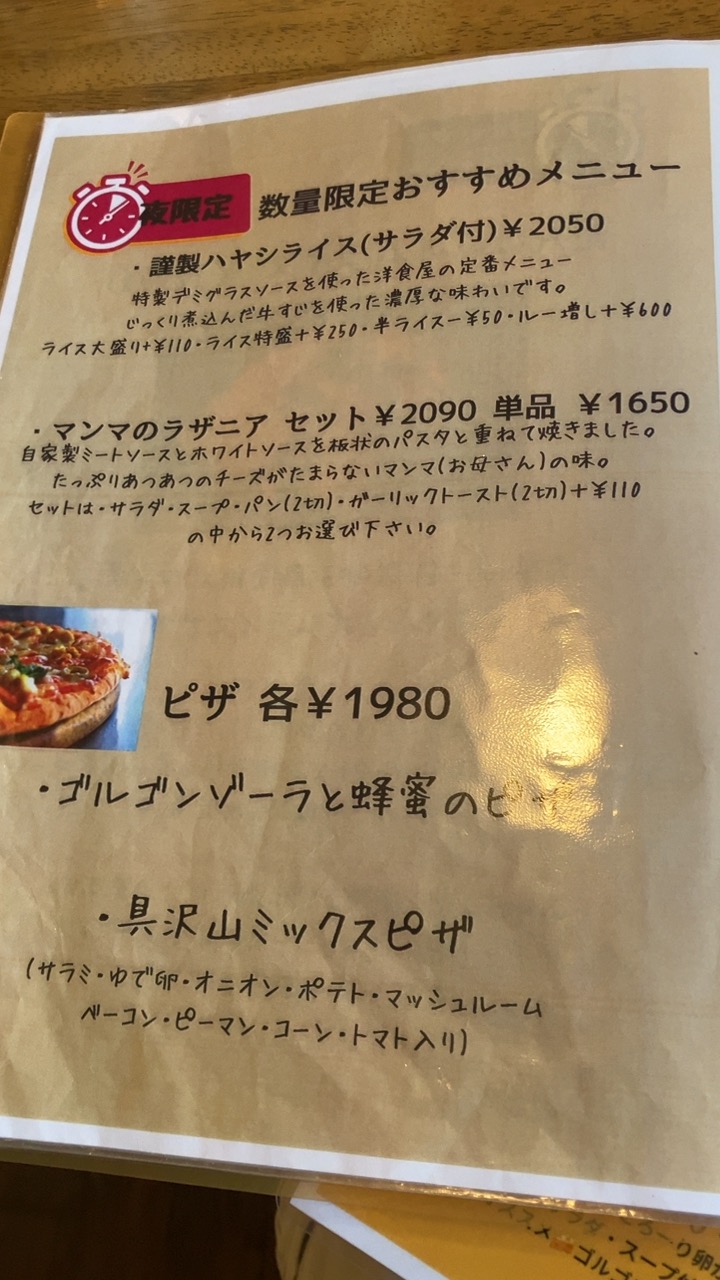 夜限定 数量限定おすすめメニュー
・謹製ハヤシライス(サラダ付)¥2050
特製デミグラスソースを使った洋食屋の定番メニュー
じっくり煮込んだ牛すじを使った濃厚な味わいです。
ライス大盛り+¥110・ライス特盛+¥250・半ライスー¥50・ルー増し+¥600
・マンマのラザニア セット¥2090 単品 ¥1650
自家製ミートソースとホワイトソースを板状のパスタと重ねて焼きました。
たっぷりあつあつのチーズがたまらないマンマ(お母さん)の味。
セットは・サラダ・スープ・パン(2切)・ガーリックトースト(2切)+¥110
の中から2つお選び下さい。
ピザ 各¥1980
・ゴルゴンゾーラと蜂蜜のピザ
・具沢山ミックスピザ
(サラミ・ゆで卵・オニオン・ポテト・マッシュルーム
ベーコン・ピーマン・コーン・トマト入り)